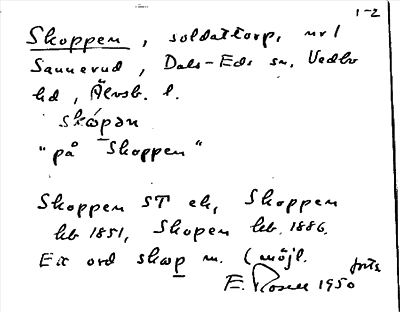 1-2
Skoppen, soldattorp, nr 1
Sannerud, Dals-Eds sn, Vedbo
hd, Älvsb. l.
skɷ́pən
"på Skoppen"
Skoppen ST ek, Skoppen
hb 1851, Skopen hb. 1886.
Ett ord skɷp m. (möjl.
forts
E. Rosell 1950